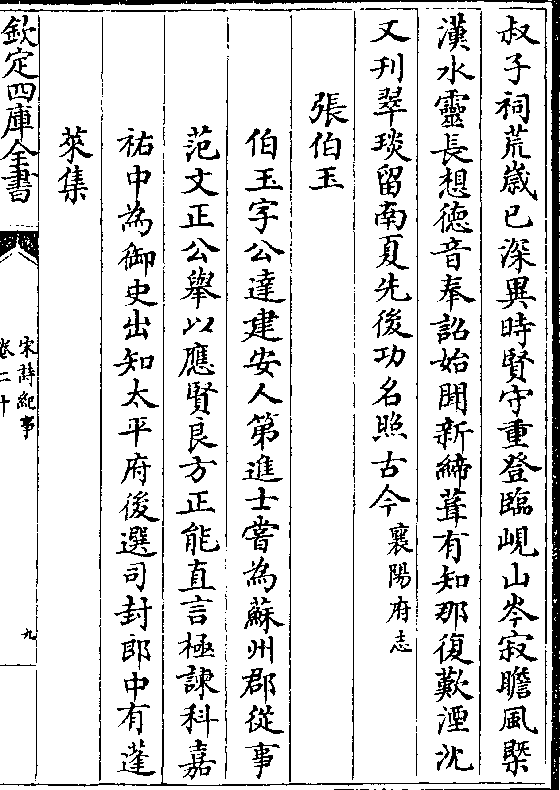 叔子祠荒歲已深異時賢守重登臨峴山岑寂瞻風槩
漢水靈長想德音奉詔始聞新締葺有知那復歎湮沈
又刊翠琰留南夏先後功名照古今襄陽府志
張伯玉
伯玉字公達建安人第進士嘗為蘇州郡從事
范文正公舉以應賢良方正能直言極諫科嘉
祐中為御史出知太平府後選司封郎中有蓬
萊集
欽定四庫全書
宋詩紀事
卷二十
九